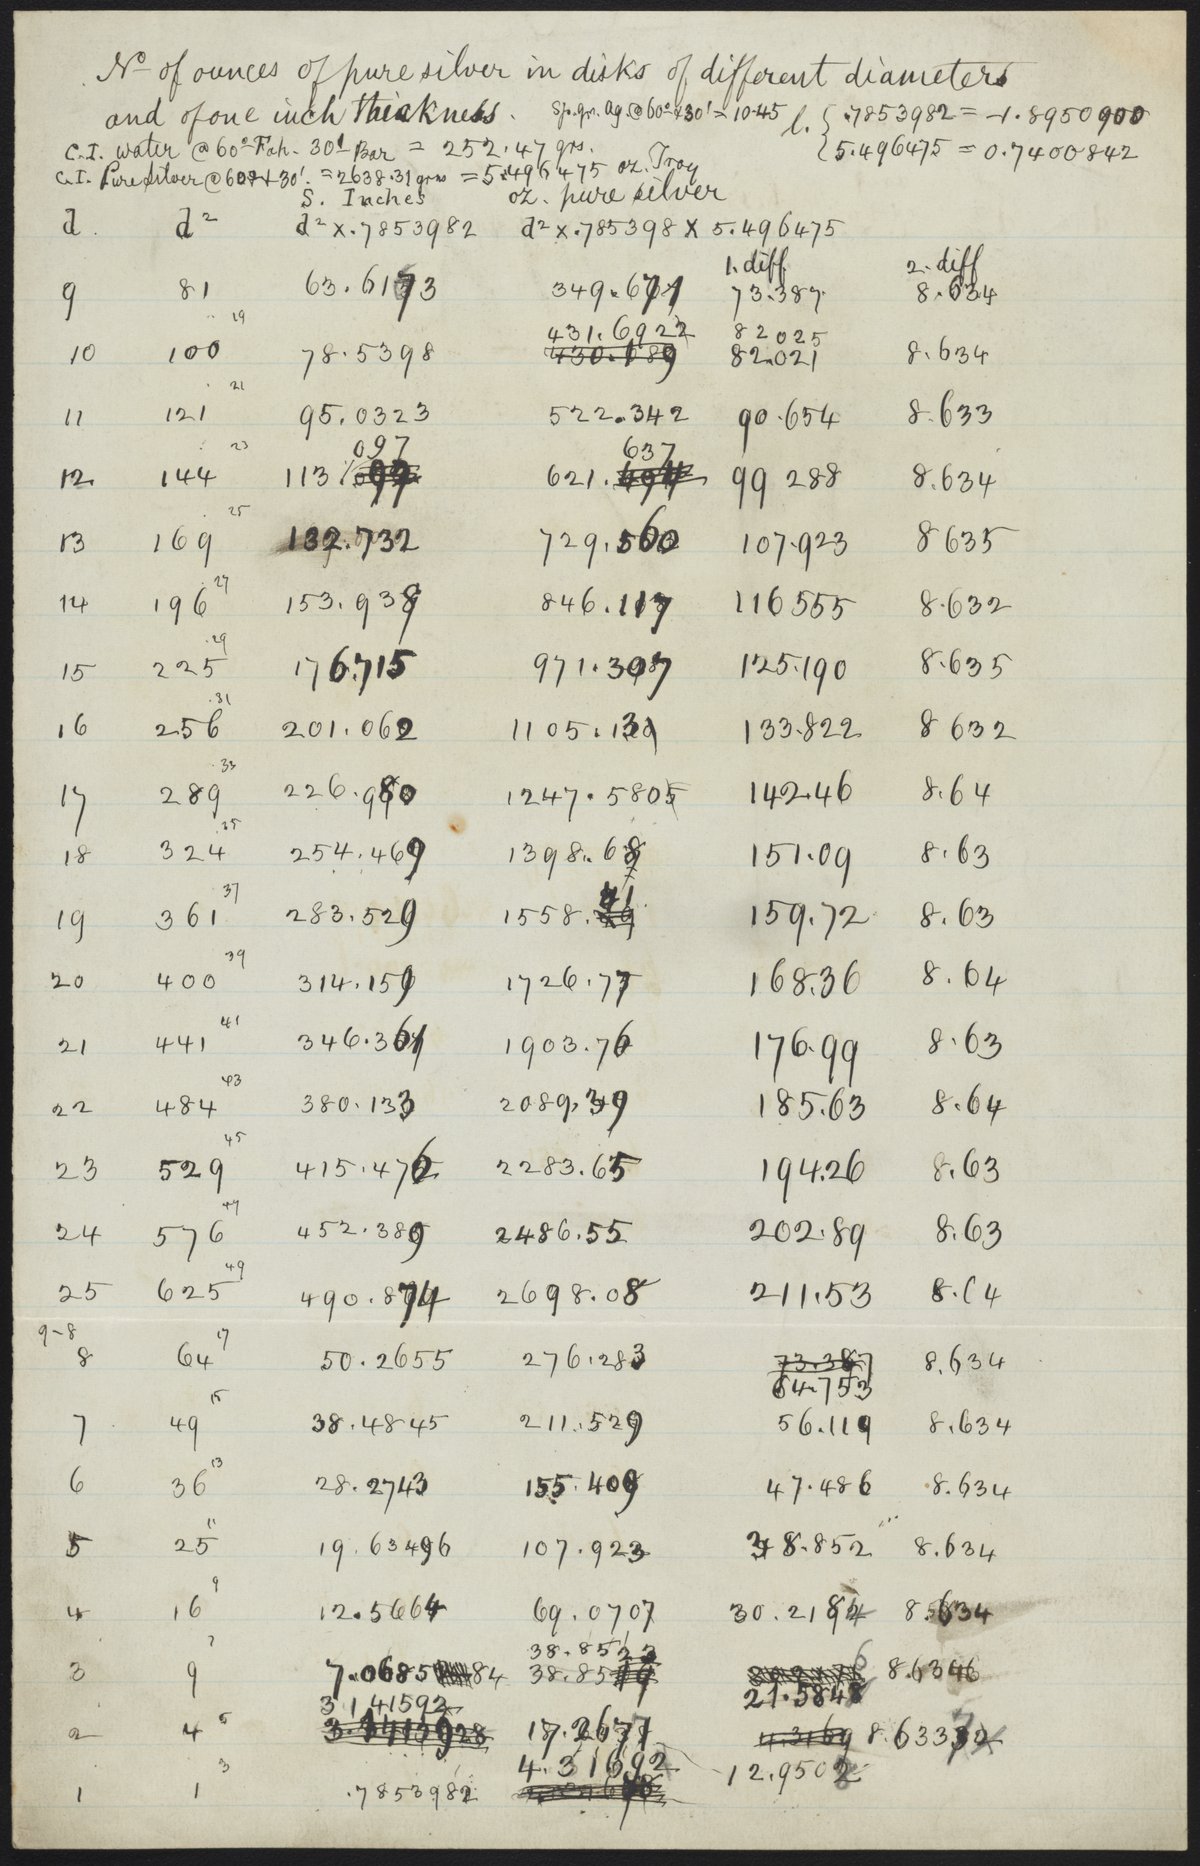 No of ounces of pure silver in disks of different diameters
and of one inch thickness. Sp.gr. Ag. @ 60° & 30' = 10.45 l. { .7853982 = -1.8950900
C.I. water @ 60° Fah. 30' Bar = 252.47 grs. { 5.496475 = 0.7400842
C.I. Pure Silver @ 60° & 30'. = 2638.31 grns = 5.496475 oz. Troy
S. Inches oz. pure silver
d. d² d² x .7853982 d² x .785398 x 5.496475
1. diff 2. diff
9 81 63.6173 349.671 73.387 8.634
19 431.6922 82025
10 100 78.5398 82.021 8.634
21
11 121 95.0323 522.342 90.654 8.633
23 097 637
12 144 113. 621. 99 288 8.634
25
13 169 132.732 729.560 107.923 8 635
27
14 196 153.938 846.117 116 555 8.632
29
15 225 176.715 971.307 125.190 8.635
31
16 256 201.062 1105.131 133.822 8 632
33
17 289 226.980 1247.5805 142.46 8.64
35
18 324 254.469 1398.68 151.09 8.63
37 41
19 361 283.529 1558. 159.72 8.63
39
20 400 314.159 1726.77 168.36 8.64
41
21 441 346.361 1903.76 176.99 8.63
43
22 484 380.133 2089.39 185.63 8.64
45
23 529 415.476 2283.65 194.26 8.63
47
24 576 452.389 2486.55 202.89 8.63
49
25 625 490.874 2698.08 211.53 8.64
9-8 17
8 64 50.2655 276.283 73.387 8.634
64.753
15
7 49 38.4845 211.529 56.119 8.634
13
6 36 28.2743 155.409 47.486 8.634
11
5 25 19.63496 107.923 38.852 8.634
9
4 16 12.5664 69.0707 30.2184 8.634
7 38.8523
3 9 7.0685 84 38.85 8.6346
3.141592 21.5848
5
2 4 17.2677 4.3169 8.6333
3 4.31692 12.9502
1 1 .7853982